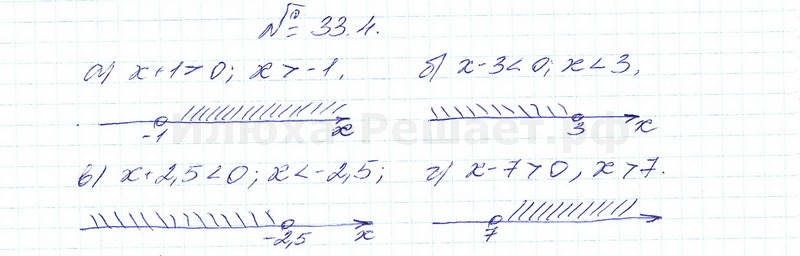 № 33.4.
а) x+1>0; x>-1,
б) x-3<0; x<3,
-1
x
3
x
Илюха-Решает.рф
в) x+2,5<0; x<-2,5;
г) x-7>0, x>7.
-2,5
x
7